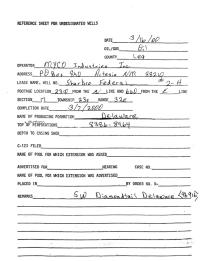 REFERENCE SHEET FOR UNDESIGNATED WELLS
DATE 3/16/00
OIL/GAS Oil
COUNTY Lea
OPERATOR MYCO Industries Inc
ADDRESS PO Box 840 Artesia NM 88210
LEASE NAME, WELL NO. Sharbro Federal #2-H
FOOTAGE LOCATION FROM THE LINE AND 660 FROM THE LINE
SECTION TOWNSHIP 23s RANGE 32e
COMPLETION DATE 3/7/2000
NAME OF PRODUCING FORMATION Delaware
TOP OF PERFORATIONS 8386-8464
DEPTH TO CASING SHOE
C-123 FILED
NAME OF POOL FOR WHICH EXTENSION WAS ASKED
ADVERTISED FOR HEARING CASE NO.
NAME OF POOL FOR WHICH EXTENSION WAS ADVERTISED
PLACED IN BY ORDER NO. R-
REMARKS SW Diamondtail Delaware